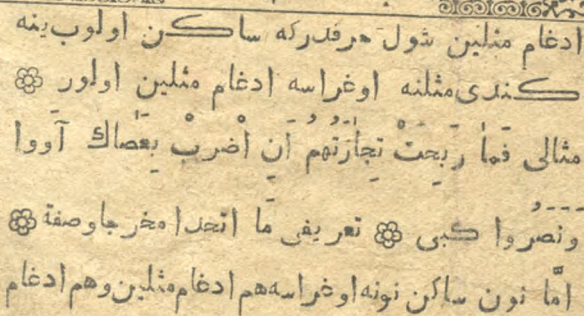 ادغام مثلين شول حرفدركه ساكن اولوب ينه
كندى مثلنه اوغراسه ادغام مثلين اولور
مثالى فَمَا رَبِحَتْ تِجَارَتُهُمْ أَنِ اْضْرِبْ بِعَصَاكَ آوَوا
وَنَصَرُوا كبى تعريفى مَا اتحدا مخرجا وصفة
امّا نون ساكن نونه اوغراسه هم ادغام مثلين وهم ادغام